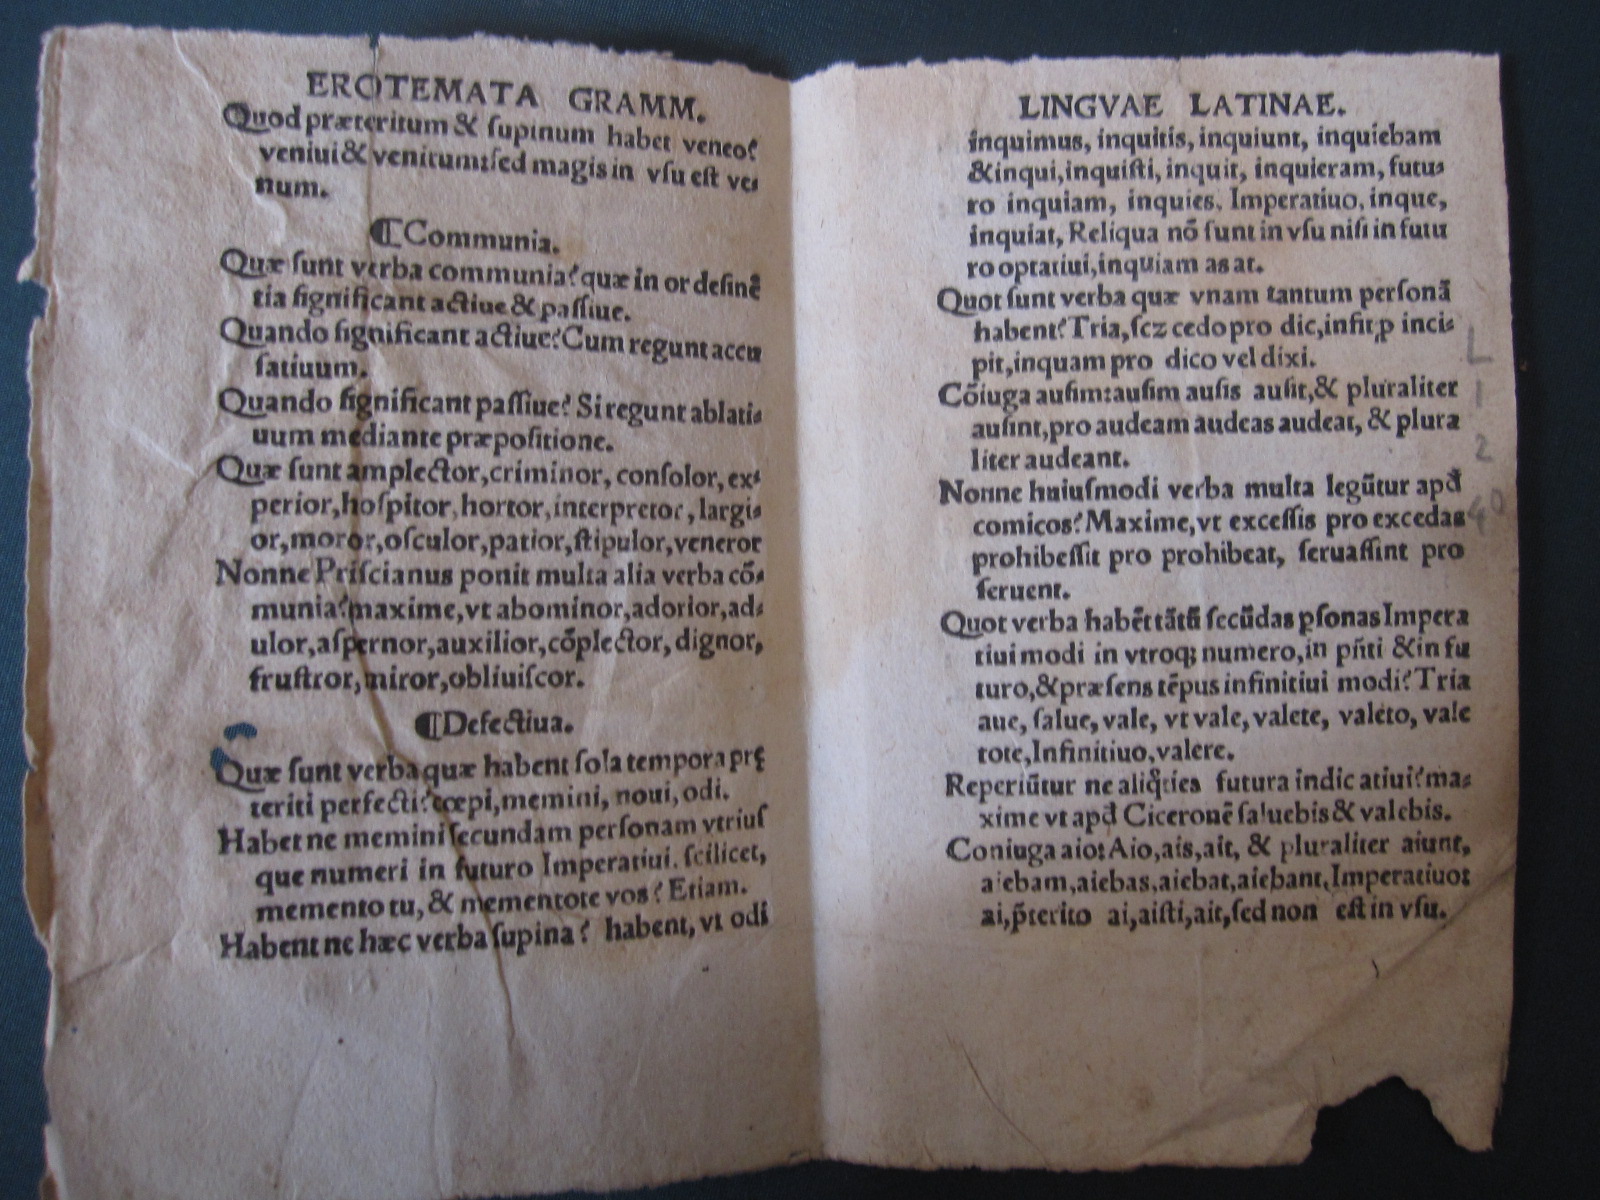 EROTEMATA GRAMM.
Quod præteritum & ſupinum habet veneo?
veniui & venitum:ſed magis in vſu eſt ve⸗
num.
¶Communia.
Quæ ſunt verba communia? quæ in or deſinẽ
tia ſignificant actiue & paſſiue.
Quando ſignificant actiue? Cum regunt accu
ſatiuum.
Quando ſignificant paſſiue? Si regunt ablati⸗
uum mediante præpoſitione.
Quæ ſunt amplector, criminor, conſolor, ex⸗
perior, hoſpitor, hortor, interpretor, largi⸗
or, moror, oſculor, patior, ſtipulor, veneror
Nonne Priſcianus ponit multa alia verba cõ⸗
munia? maxime, vt abominor, adorior, ad⸗
ulor, aſpernor, auxilior, cõplector, dignor,
fruſtror, miror, obliuiſcor.
¶Defectiua.
Quæ ſunt verba quæ habent ſola tempora prę
teriti perfecti? cœpi, memini, noui, odi.
Habet ne memini ſecundam perſonam vtriuſ
que numeri in futuro Imperatiui. ſcilicet,
memento tu, & mementote vos? Etiam.
Habent ne hæc verba ſupina? habent, vt odi
LINGVAE LATINAE.
inquimus, inquitis, inquiunt, inquiebam
& inqui, inquiſti, inquit, inquieram, futu⸗
ro inquiam, inquies, Imperatiuo, inque,
inquiat, Reliqua nõ ſunt in vſu niſi in futu
ro optatiui, inquiam as at.
Quot ſunt verba quæ vnam tantum perſonã
habent? Tria, ſcz cedo pro dic, infit ꝓ inci⸗
pit, inquam pro dico vel dixi.
Cõiuga auſim: auſim auſis auſit, & pluraliter
auſint, pro audeam audeas audeat, & plura
liter audeant.
Nonne huiuſmodi verba multa legũtur apđ
comicos? Maxime, vt exceſſis pro excedas
prohibeſſit pro prohibeat, ſeruaſſint pro
ſeruent.
Quot verba habẽt tãtũ ſecũdas ꝑſonas Impera
tiui modi in vtroqꝫ numero, in pñti & in fu
turo, & præſens tẽpus infinitiui modi? Tria
aue, ſalue, vale, vt vale, valete, valeto, vale
tote, Infinitiuo, valere.
Reperiũtur ne aliq̃ties futura indicatiui? ma⸗
xime vt apđ Ciceronẽ ſaluebis & valebis.
Coniuga aio: Aio, ais, ait, & pluraliter aiunt,
aiebam, aiebas, aiebat, aiebant, Imperatiuo:
ai, p̃terito ai, aiſti, ait, ſed non eſt in vſu.
L
1
2
40